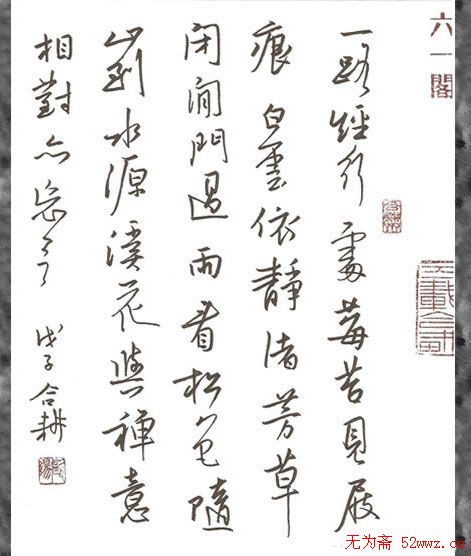 六一閣
一路經行處莓苔見屐
痕白雲依靜渚芳草
閉閒門過雨看松色隨
山到水源溪花與禪意
相對亦忘言
戊子合耕
无为斋 52wwz.c